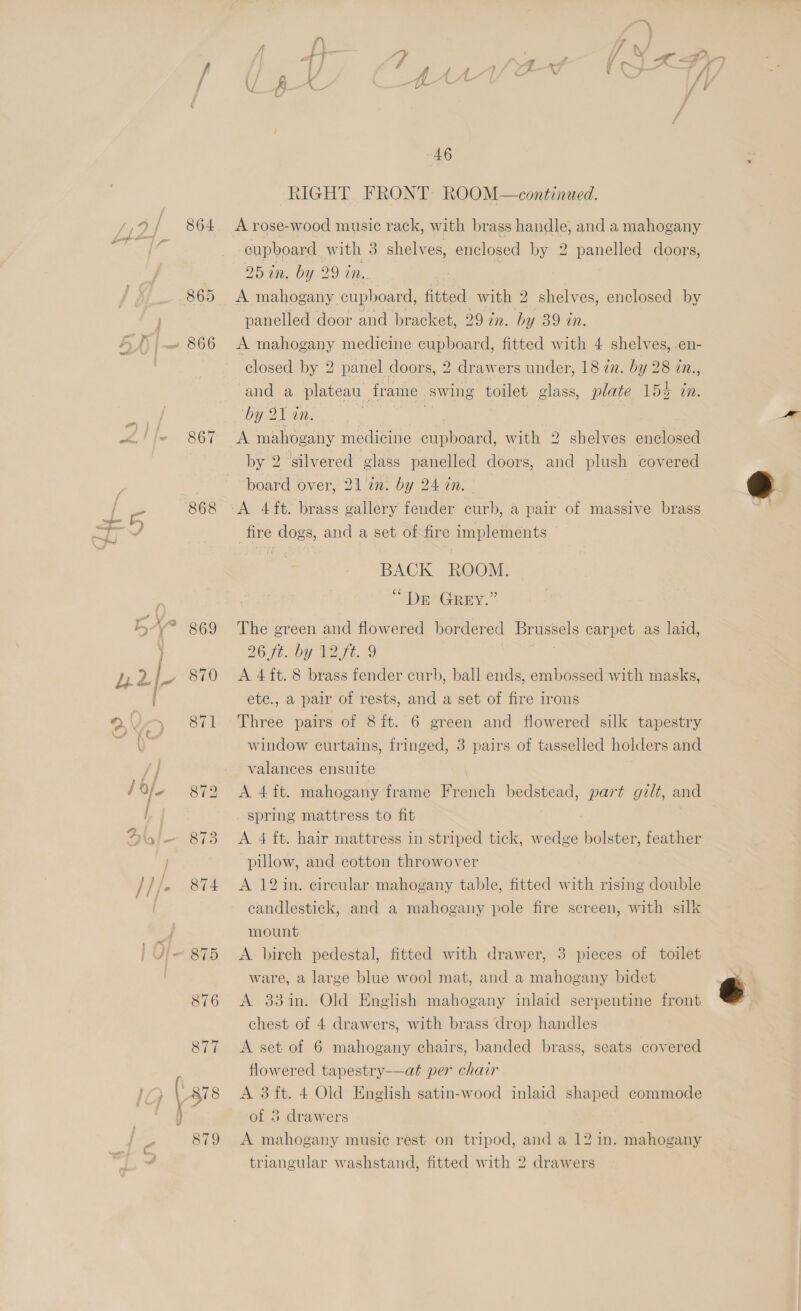 46
RIGHT FRONT ROOM—continued.
864 A rose-wood music rack, with brass handle, and a mahogany
cupboard with 3 shelves, enclosed by 2 panelled doors,
25 in. by 29 in.
865 A mahogany cupboard, fitted with 2 shelves, enclosed by
panelled door and bracket, 29 in. by 39 in.
866 A mahogany medicine cupboard, fitted with 4 shelves, en-
closed by 2 panel doors, 2 drawers under, 18 in. by 28 in.,
and a plateau frame swing toilet glass, plate 15½ in.
by 21 in.
867 A mahogany medicine cupboard, with 2 shelves enclosed
by 2 silvered glass panelled doors, and plush covered
board over, 21 in. by 24 in.
868 A 4 ft. brass gallery fender curb, a pair of massive brass
fire dogs, and a set of fire implements
BACK ROOM.
“De Grey.”
869 The green and flowered bordered Brussels carpet as laid,
26 ft. by 12 ft. 9
870 A 4 ft. 8 brass fender curb, ball ends, embossed with masks,
etc., a pair of rests, and a set of fire irons
871 Three pairs of 8 ft. 6 green and flowered silk tapestry
window curtains, fringed, 3 pairs of tasselled holders and
valances ensuite
872 A 4 ft. mahogany frame French bedstead, part gilt, and
spring mattress to fit
873 A 4 ft. hair mattress in striped tick, wedge bolster, feather
pillow, and cotton throwover
874 A 12 in. circular mahogany table, fitted with rising double
candlestick, and a mahogany pole fire screen, with silk
mount
875 A birch pedestal, fitted with drawer, 3 pieces of toilet
ware, a large blue wool mat, and a mahogany bidet
876 A 33 in. Old English mahogany inlaid serpentine front
chest of 4 drawers, with brass drop handles
877 A set of 6 mahogany chairs, banded brass, seats covered
flowered tapestry—at per chair
878 A 3 ft. 4 Old English satin-wood inlaid shaped commode
of 3 drawers
879 A mahogany music rest on tripod, and a 12 in. mahogany
triangular washstand, fitted with 2 drawers